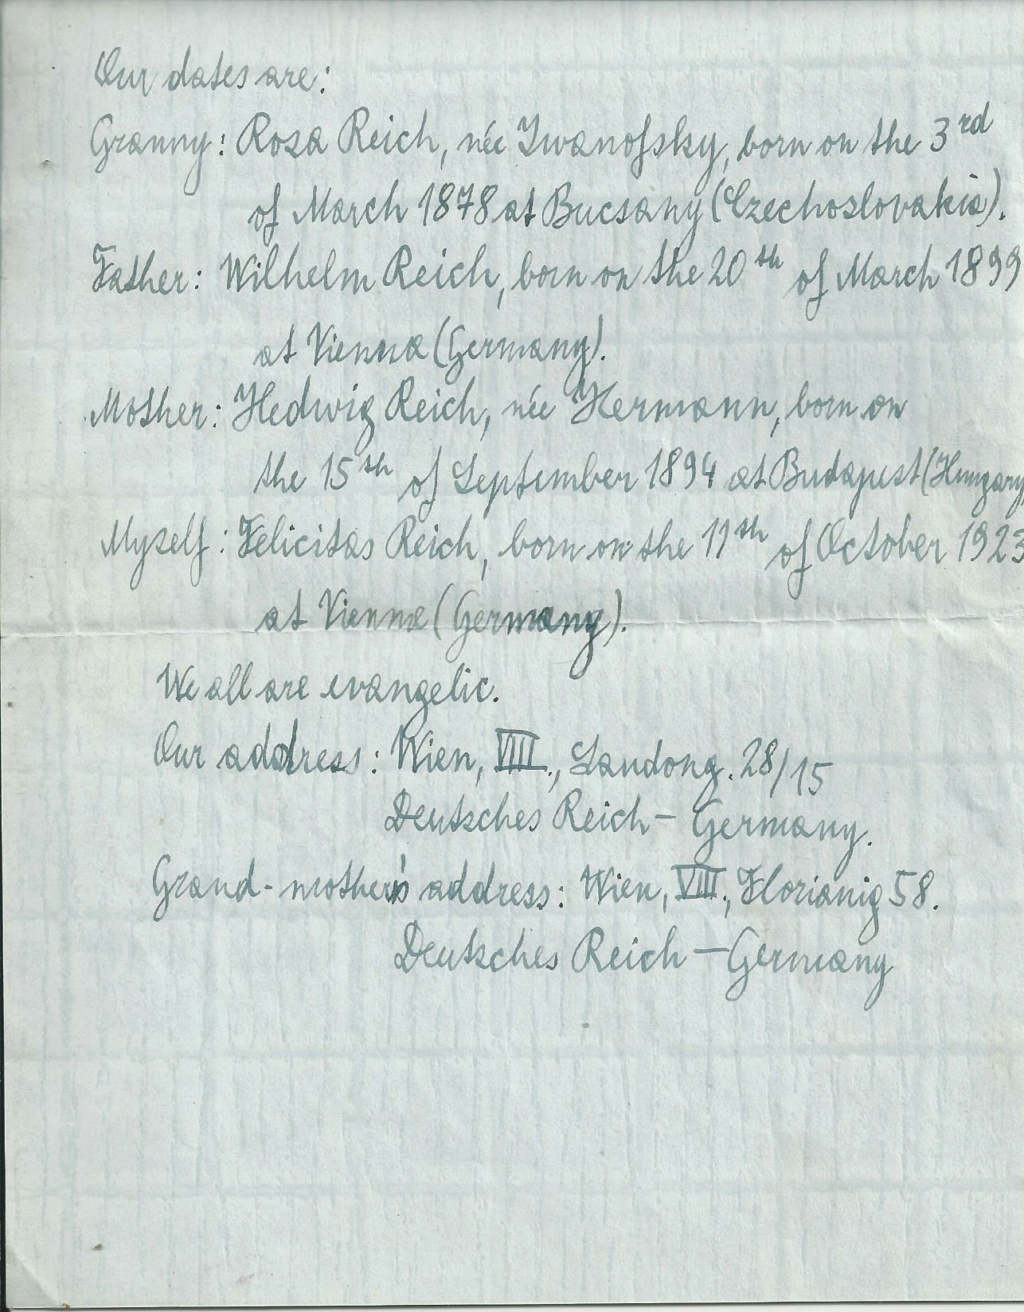 Our dates are:
Granny: Rosa Reich, née Iwanofsky, born on the 3rd
of March 1878 at Bucsany (Czechoslovakia).
Father: Wilhelm Reich, born on the 20th of March 1899
at Vienna (Germany).
Mother: Hedwig Reich, née Hermann, born on
the 15th of September 1894 at Budapest (Hungary
Myself: Felicitas Reich, born on the 11th of October 1923
at Vienna (Germany).
We all are evangelic.
Our address: Wien, VIII., Laudong. 28/15
Deutsches Reich - Germany.
Grand-mother's address: Wien, VIII., Florianig 58.
Deutsches Reich - Germany